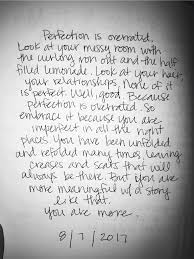 Perfection is overrated.
Look at your messy room with
the curling iron out and the half
filled lemonade. Look at your hair,
your relationships. None of it
is perfect. Well, good. Because
perfection is overrated. So
embrace it because you are
imperfect in all the right
places. You have been unfolded
and refolded many times, leaving
creases and scars that will
always be there. But you are
more meaningful w/ a story
like that.
You are more.
8/7/2017